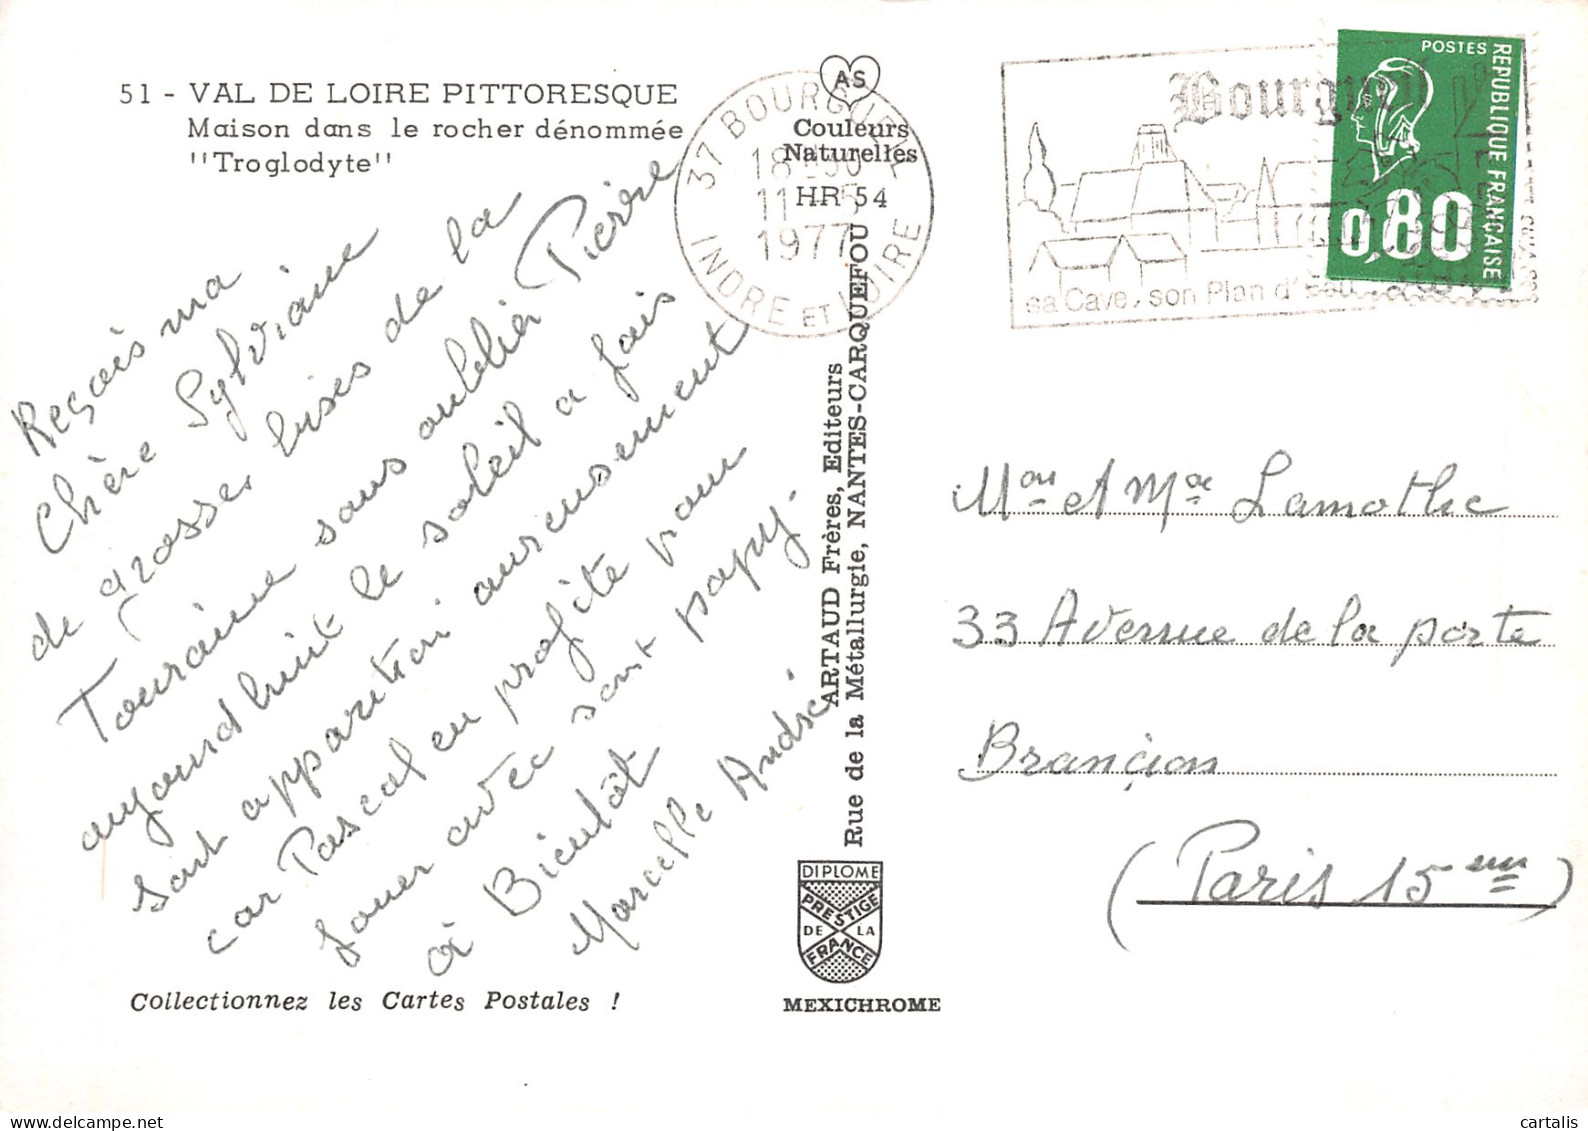 51 - VAL DE LOIRE PITTORESQUE
Maison dans le rocher dénommée
"Troglodyte"
Reçois ma
Chère Sylviane
de grosses bises de la
Touraine sans oublier Pierre
aujourd'huit le soleil a fais
sont apparition aureusement
car Pascal en profite pour
jouer avec sont papy.
à Bientôt
Marcelle André
Collectionnez les Cartes Postales !
AS
Couleurs
Naturelles
HR 54
37 BOURGUEIL
18
11 - 5
1977
INDRE ET LOIRE
ARTAUD Frères, Editeurs
Rue de la Métallurgie, NANTES-CARQUEFOU
DIPLOME
PRESTIGE
DE LA
FRANCE
MEXICHROME
Bourgueil
sa Cave, son Plan d'Eau
POSTES
REPUBLIQUE FRANÇAISE
0,80
Mon et Me Lamothe
33 Avenue de la porte
Brançion
(Paris 15 em)
cartalis